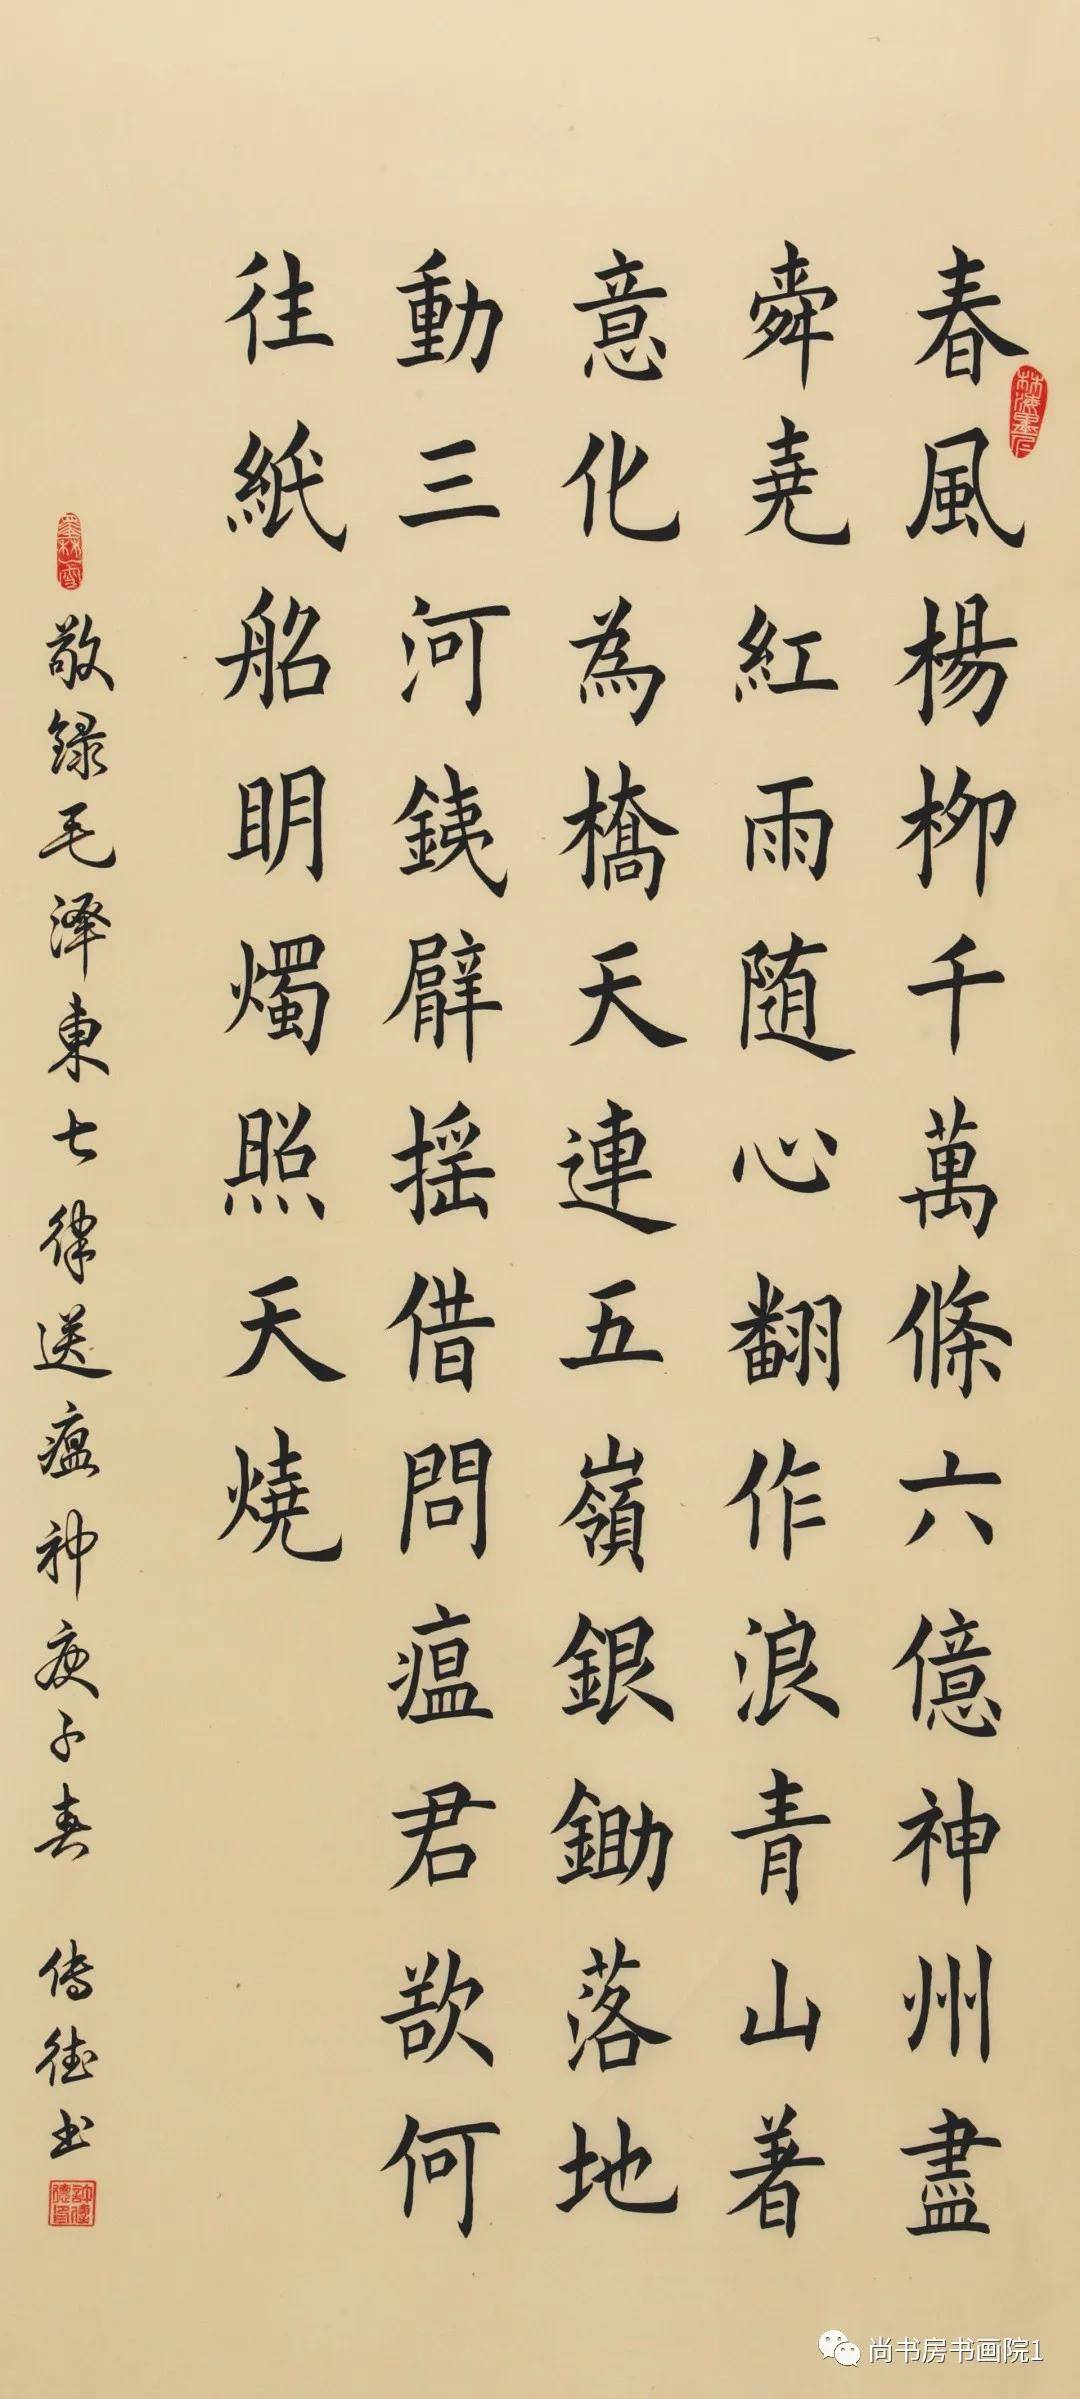 春風楊柳千萬條六億神州盡
舜堯紅雨随心翻作浪青山著
意化為橋天連五嶺銀鋤落地
動三河銕臂摇借問瘟君欲何
往紙船明燭照天燒
敬録毛泽東七律送瘟神庚子春 傳德书
尚书房书画院1